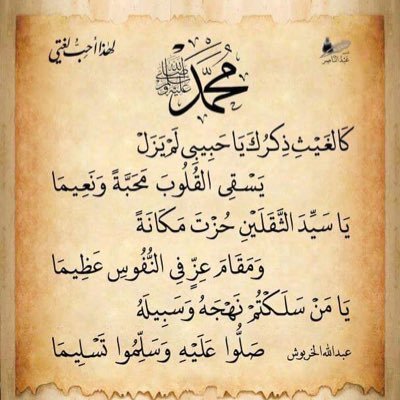 لهذا أحب لغتي
عبدالناصر
محمد ﷺ
كَالغَيْثِ ذِكْرُكَ يَا حَبِيبِي لَمْ يَزَلْ
يَسْقِي القُلُوبَ مَحَبَّةً وَنَعِيمَا
يَا سَيِّدَ الثَّقَلَيْنِ حُزْتَ مَكَانَةً
وَمَقَامَ عِزٍّ فِي النُّفُوسِ عَظِيمَا
يَا مَنْ سَلَكْتُمْ نَهْجَهُ وَسَبِيلَهُ
صَلُّوا عَلَيْهِ وَسَلِّمُوا تَسْلِيمَا
عبدالله الخربوش